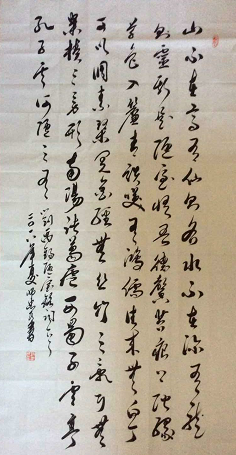 山不在高有仙則名水不在深有龍
則靈斯是陋室惟吾德馨苔痕上階綠
草色入簾青談笑有鴻儒往來無白丁
可以調素琴閱金經無絲竹之亂耳無
案牘之勞形南陽諸葛廬西蜀子雲亭
孔子云何陋之有
劉禹錫陋室銘